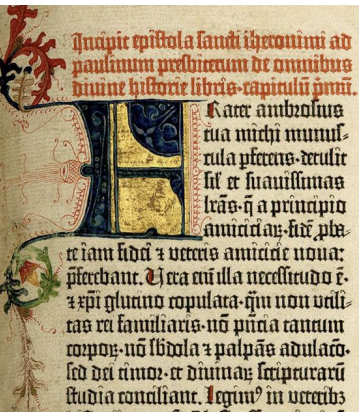 Incipit epistola sancti iheronimi ad
paulinum presbiterum de omnibus
divine historie libris· capitulū pmū.
Frater ambrosius
tua michi munus-
cula pferens· detulit
sił et suavissimas
lrās· q̄ a principio
amiciciaȝ· fidē pba-
te iam fidei ⁊ veteris amicicie nova:
pferebant. Vera enī illa necessitudo ē·
⁊ xpī glutino copulata· q̄m non utili-
tas rei familiaris· nō pncia tantum
corpoȝ· nō sbdola ⁊ palpās adulacō·
sed dei timor· et divinaȝ scripturarū
studia conciliant. Legim⁹ in veteribȝ